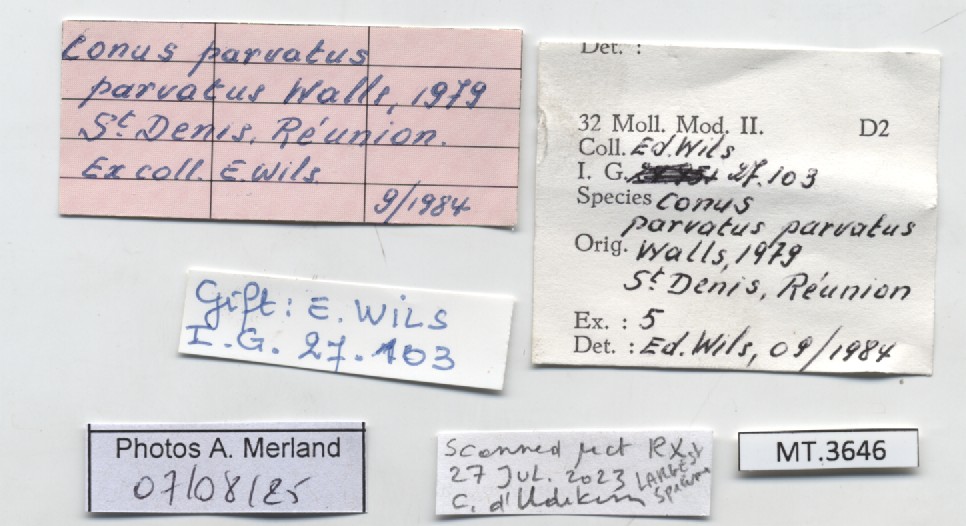 Conus parvatus
parvatus Walls, 1979
St Denis, Réunion.
Ex coll. E. Wils.
9/1984
Det. :
32 Moll. Mod. II. D2
Coll. Ed. Wils
I. G. 27.103
Species Conus
parvatus parvatus
Orig. Walls, 1979
St Denis, Réunion
Ex. : 5
Det. : Ed. Wils, 09/1984
Gift: E. WILS
I.G. 27.103
Photos A. Merland
07/08/25
Scanned RX
27 JUL. 2023
C. d'Udekem
LARGEST
MT.3646